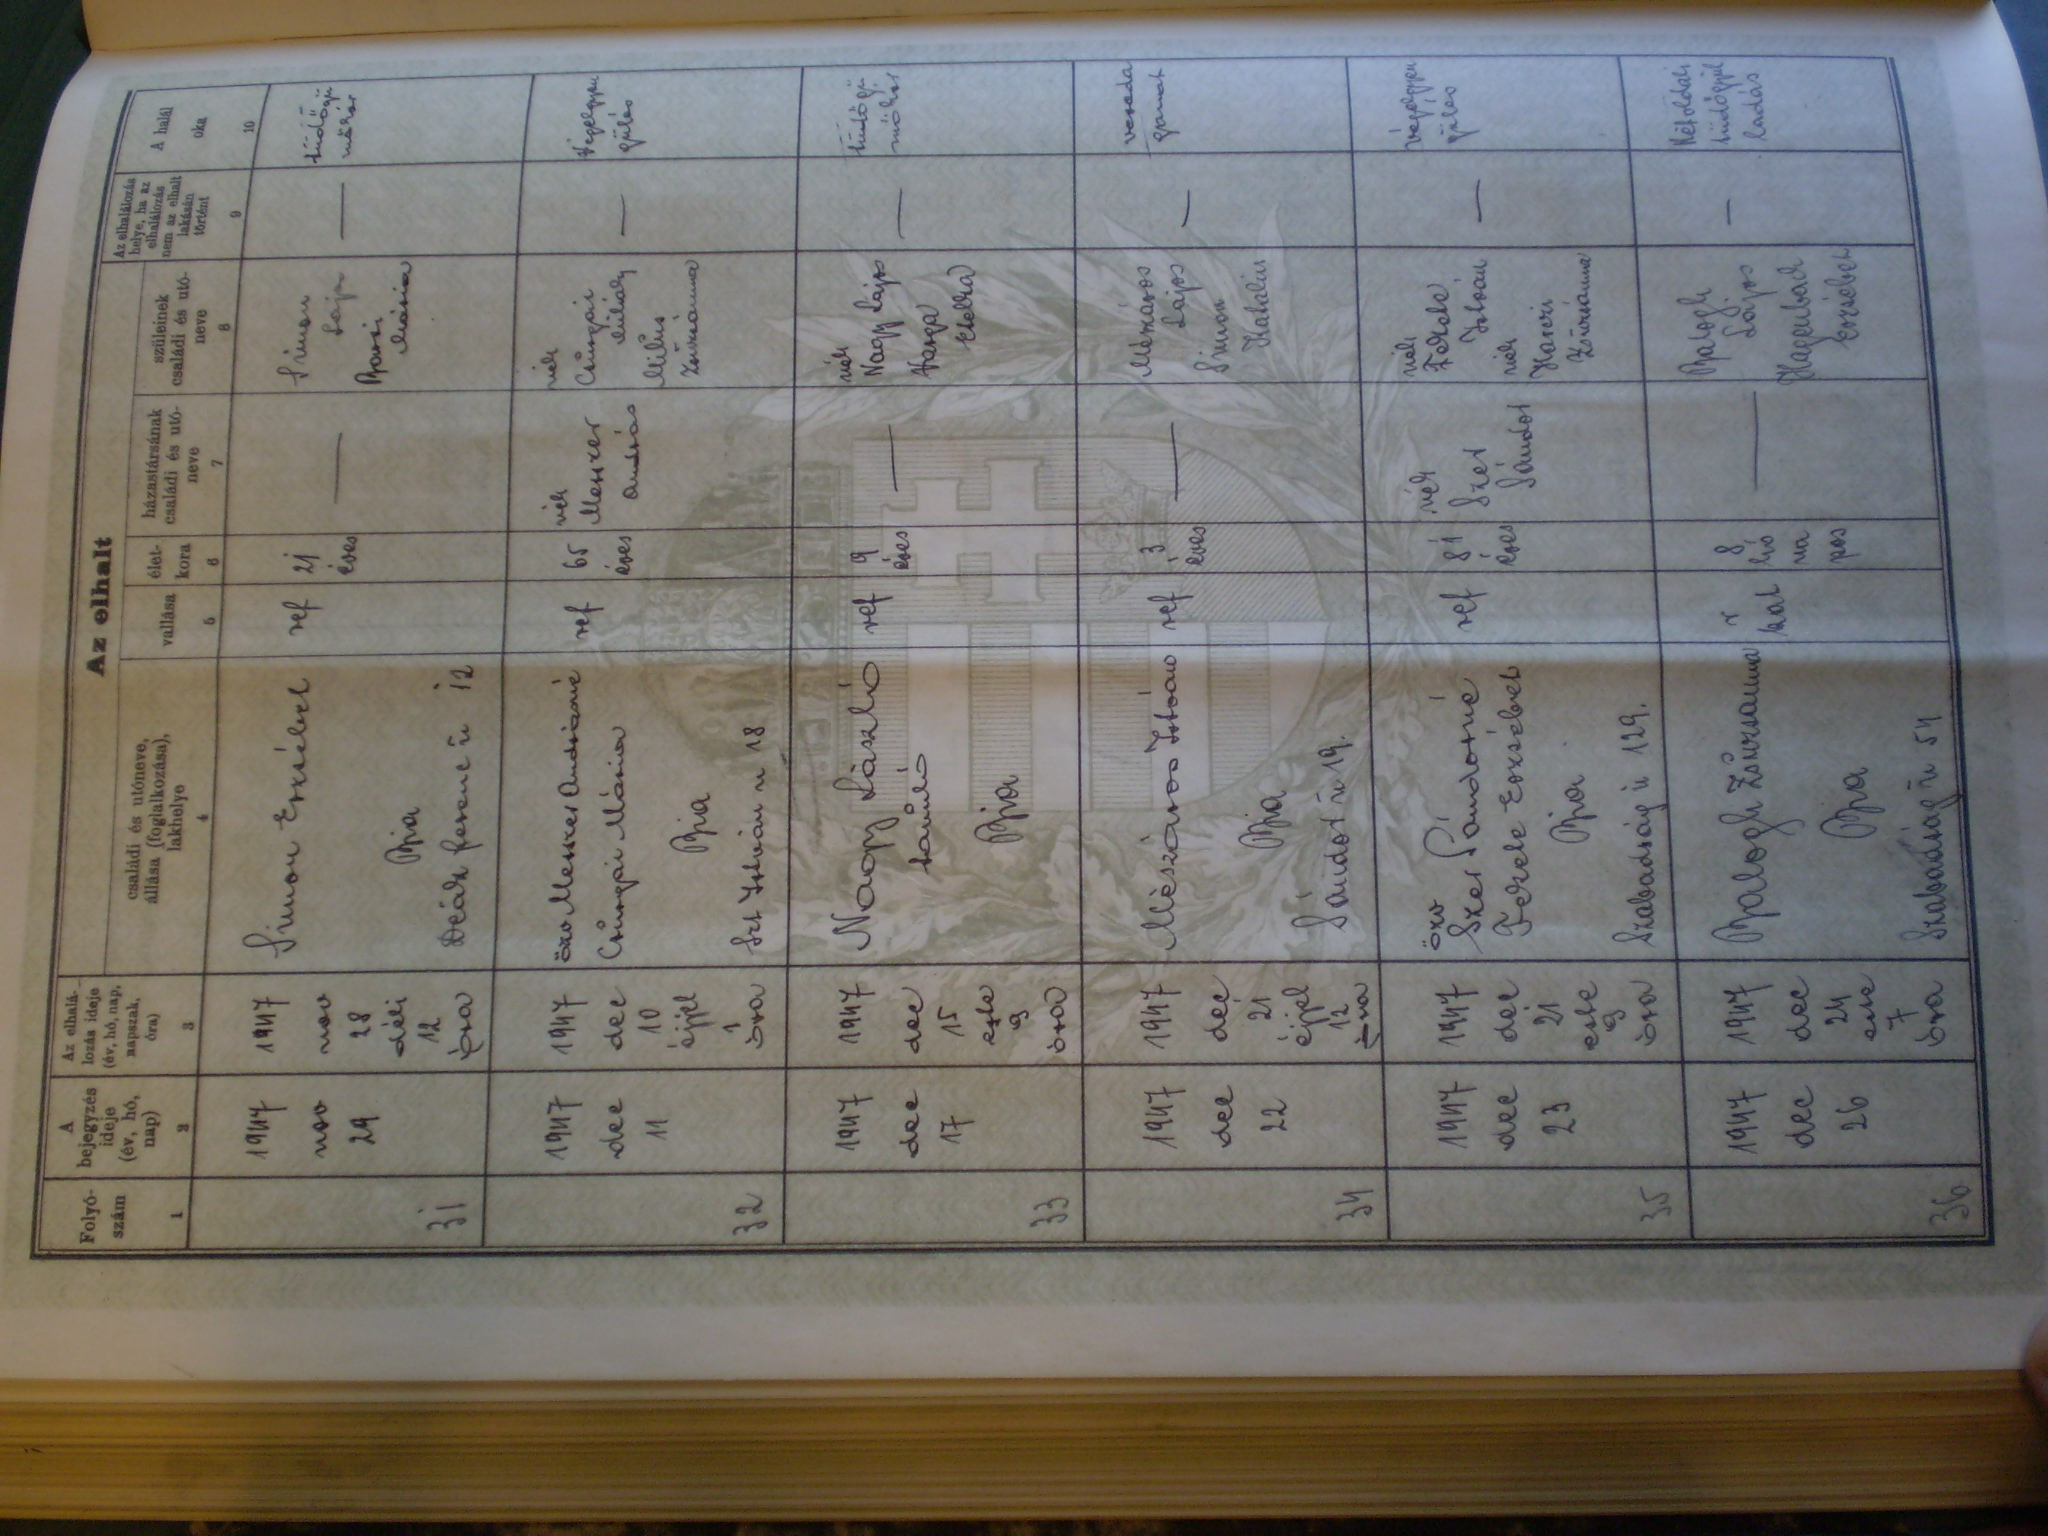 Az elhalt
Folyó-
szám
A
bejegyzés
ideje
(év, hó,
nap)
Az elhalá-
lozás ideje
(év, hó, nap,
napszak,
óra)
családi és utóneve,
állása (foglalkozása),
lakhelye
vallása
élet-
kora
házastársának
családi és utó-
neve
szüleinek
családi és utó-
neve
Az elhalálozás
helye, ha az
elhalálozás
nem az elhalt
lakásán
történt
A halál
oka
1
2
3
4
5
6
7
8
9
10
31
1947
nov
29
1947
nov
28
déli
12
óra
Simon Erzsébet
Bia
Deák ferenc u 12
ref
21
éves
—
Simon
Lajos
Mária
—
tüdőgü
mőkór
32
1947
dec
11
1947
dec
10
éjjel
1
óra
özv Meszer Andrásné
Csingai Mária
Bia
Szt István u 18
ref
65
éves
néh
Meszer
András
néh
Csingai
Mihály
Zsuzsánna
—
Végelgyen
gülés
33
1947
dec
17
1947
dec
15
este
9
óra
Nagy László
tanuló
Bia
ref
9
éves
—
néh
Nagy Lajos
Varga
Etelka
—
tüdőgü
mőkór
34
1947
dec
22
1947
dec
21
éjjel
12
óra
Mészáros István
Bia
Sándor u 19.
ref
3
éves
—
Mészáros
Lajos
Simon
Katalin
—
35
1947
dec
23
1947
dec
21
este
9
óra
özv
Szer Sándorné
Fekete Erzsébet
Bia
Szabadság u 129.
ref
81
éves
néh
Szer
Sándor
néh
Fekete
István
néh
Zsuzsánna
—
végelgyen
gülés
36
1947
dec
26
1947
dec
24
este
7
óra
Balogh Zsuzsanna
Bia
Szabadság u 54
r
kat
8
hó
na
pos
—
Balogh
Lajos
Hagenbach
Erzsébet
—
Kétoldali
tüdőgyul
ladás